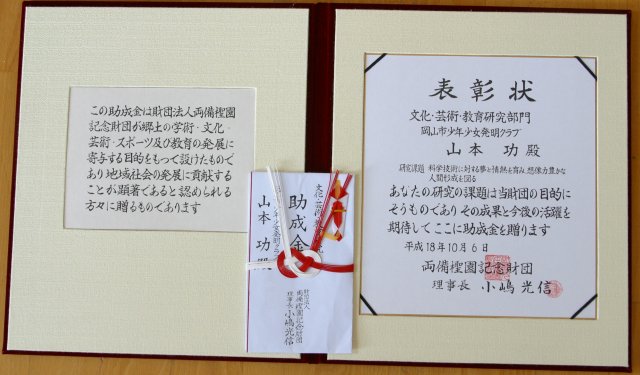 この助成金は財団法人両備檉園
記念財団が郷土の学術・文化・
芸術・スポーツ及び教育の発展に
寄与する目的をもって設けたもので
あり地域社会の発展に貢献する
ことが顕著であると認められる
方々に贈るものであります
表彰状
文化・芸術・教育研究部門
岡山市少年少女発明クラブ
山本 功 殿
研究課題 科学技術に対する夢と情熱を育み、想像力豊かな
人間形成を図る
あなたの研究の課題は当財団の目的に
そうものでありその成果と今後の活躍を
期待してここに助成金を贈ります
平成18年10月6日
両備檉園記念財団
理事長 小嶋光信
助成金
山本 功 殿
財団法人
両備檉園記念財団
理事長 小嶋光信